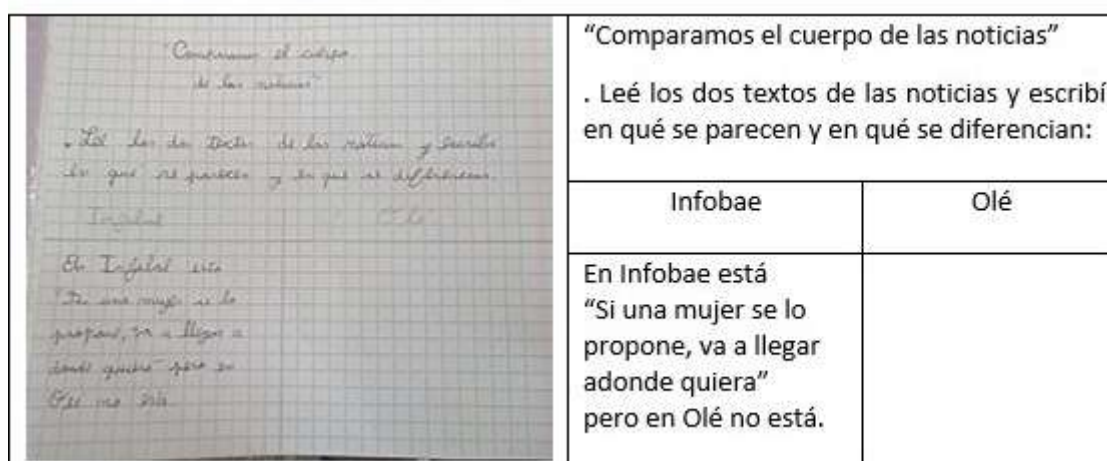 "Comparamos el cuerpo
de las noticias"
. Leé los dos textos de las noticias y escribí
en qué se parecen y en qué se diferencian.
Infobae Olé
En Infobae está
"Si una mujer se lo
propone, va a llegar a
donde quiera" pero en
Olé no está.
“Comparamos el cuerpo de las noticias”
. Leé los dos textos de las noticias y escribí
en qué se parecen y en qué se diferencian:
Infobae Olé
En Infobae está
“Si una mujer se lo
propone, va a llegar
adonde quiera”
pero en Olé no está.